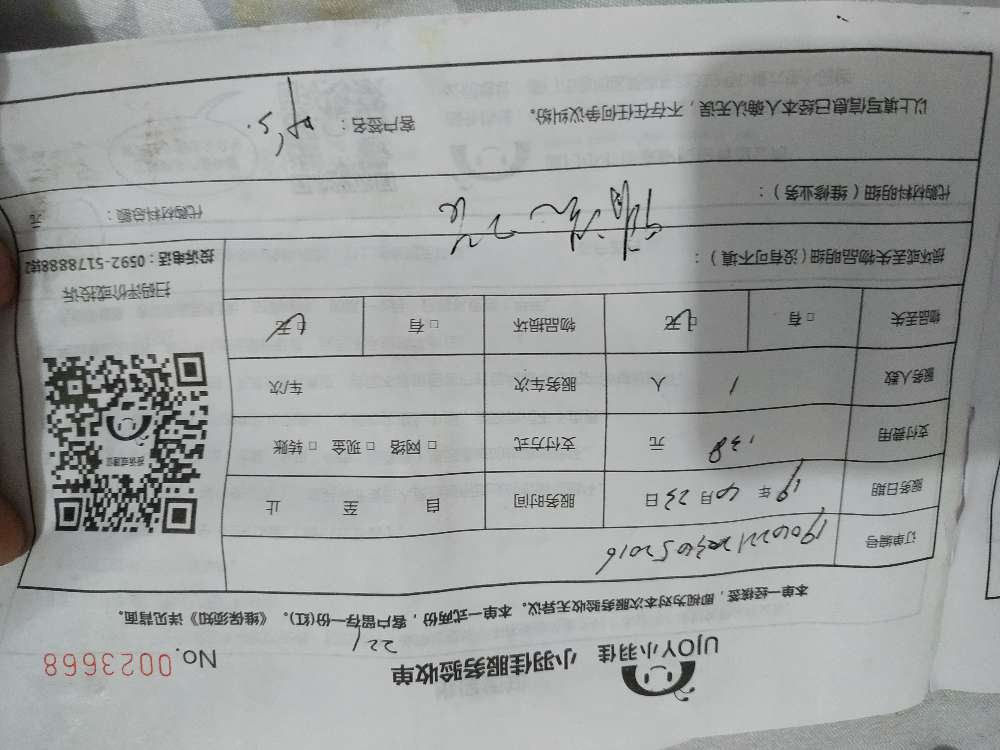 UJOY小羽佳 小羽佳服务验收单
No. 0023668
221
本单一经接签，即视为对本次服务验收无异议。本单一式两份，客户留存一份(红)。《维保须知》详见背面。
订单编号
服务日期 19 年 6 月 23 日 服务时间 自 至 止
支付费用 138 元 支付方式 □ 网络 □ 现金 □ 转账
服务人数 1 人 服务车次 车/次
物品丢失 □ 有 □ 无 物品损坏 □ 有 □ 无
损坏或丢失物品明细（没有可不填）：
代购材料明细（维修业务）：
代购材料总额： 元
以上填写信息已经本人确认无误，不存在任何争议纠纷。 客户签名：
扫码评价或投诉
投诉电话：0592-5178888转2